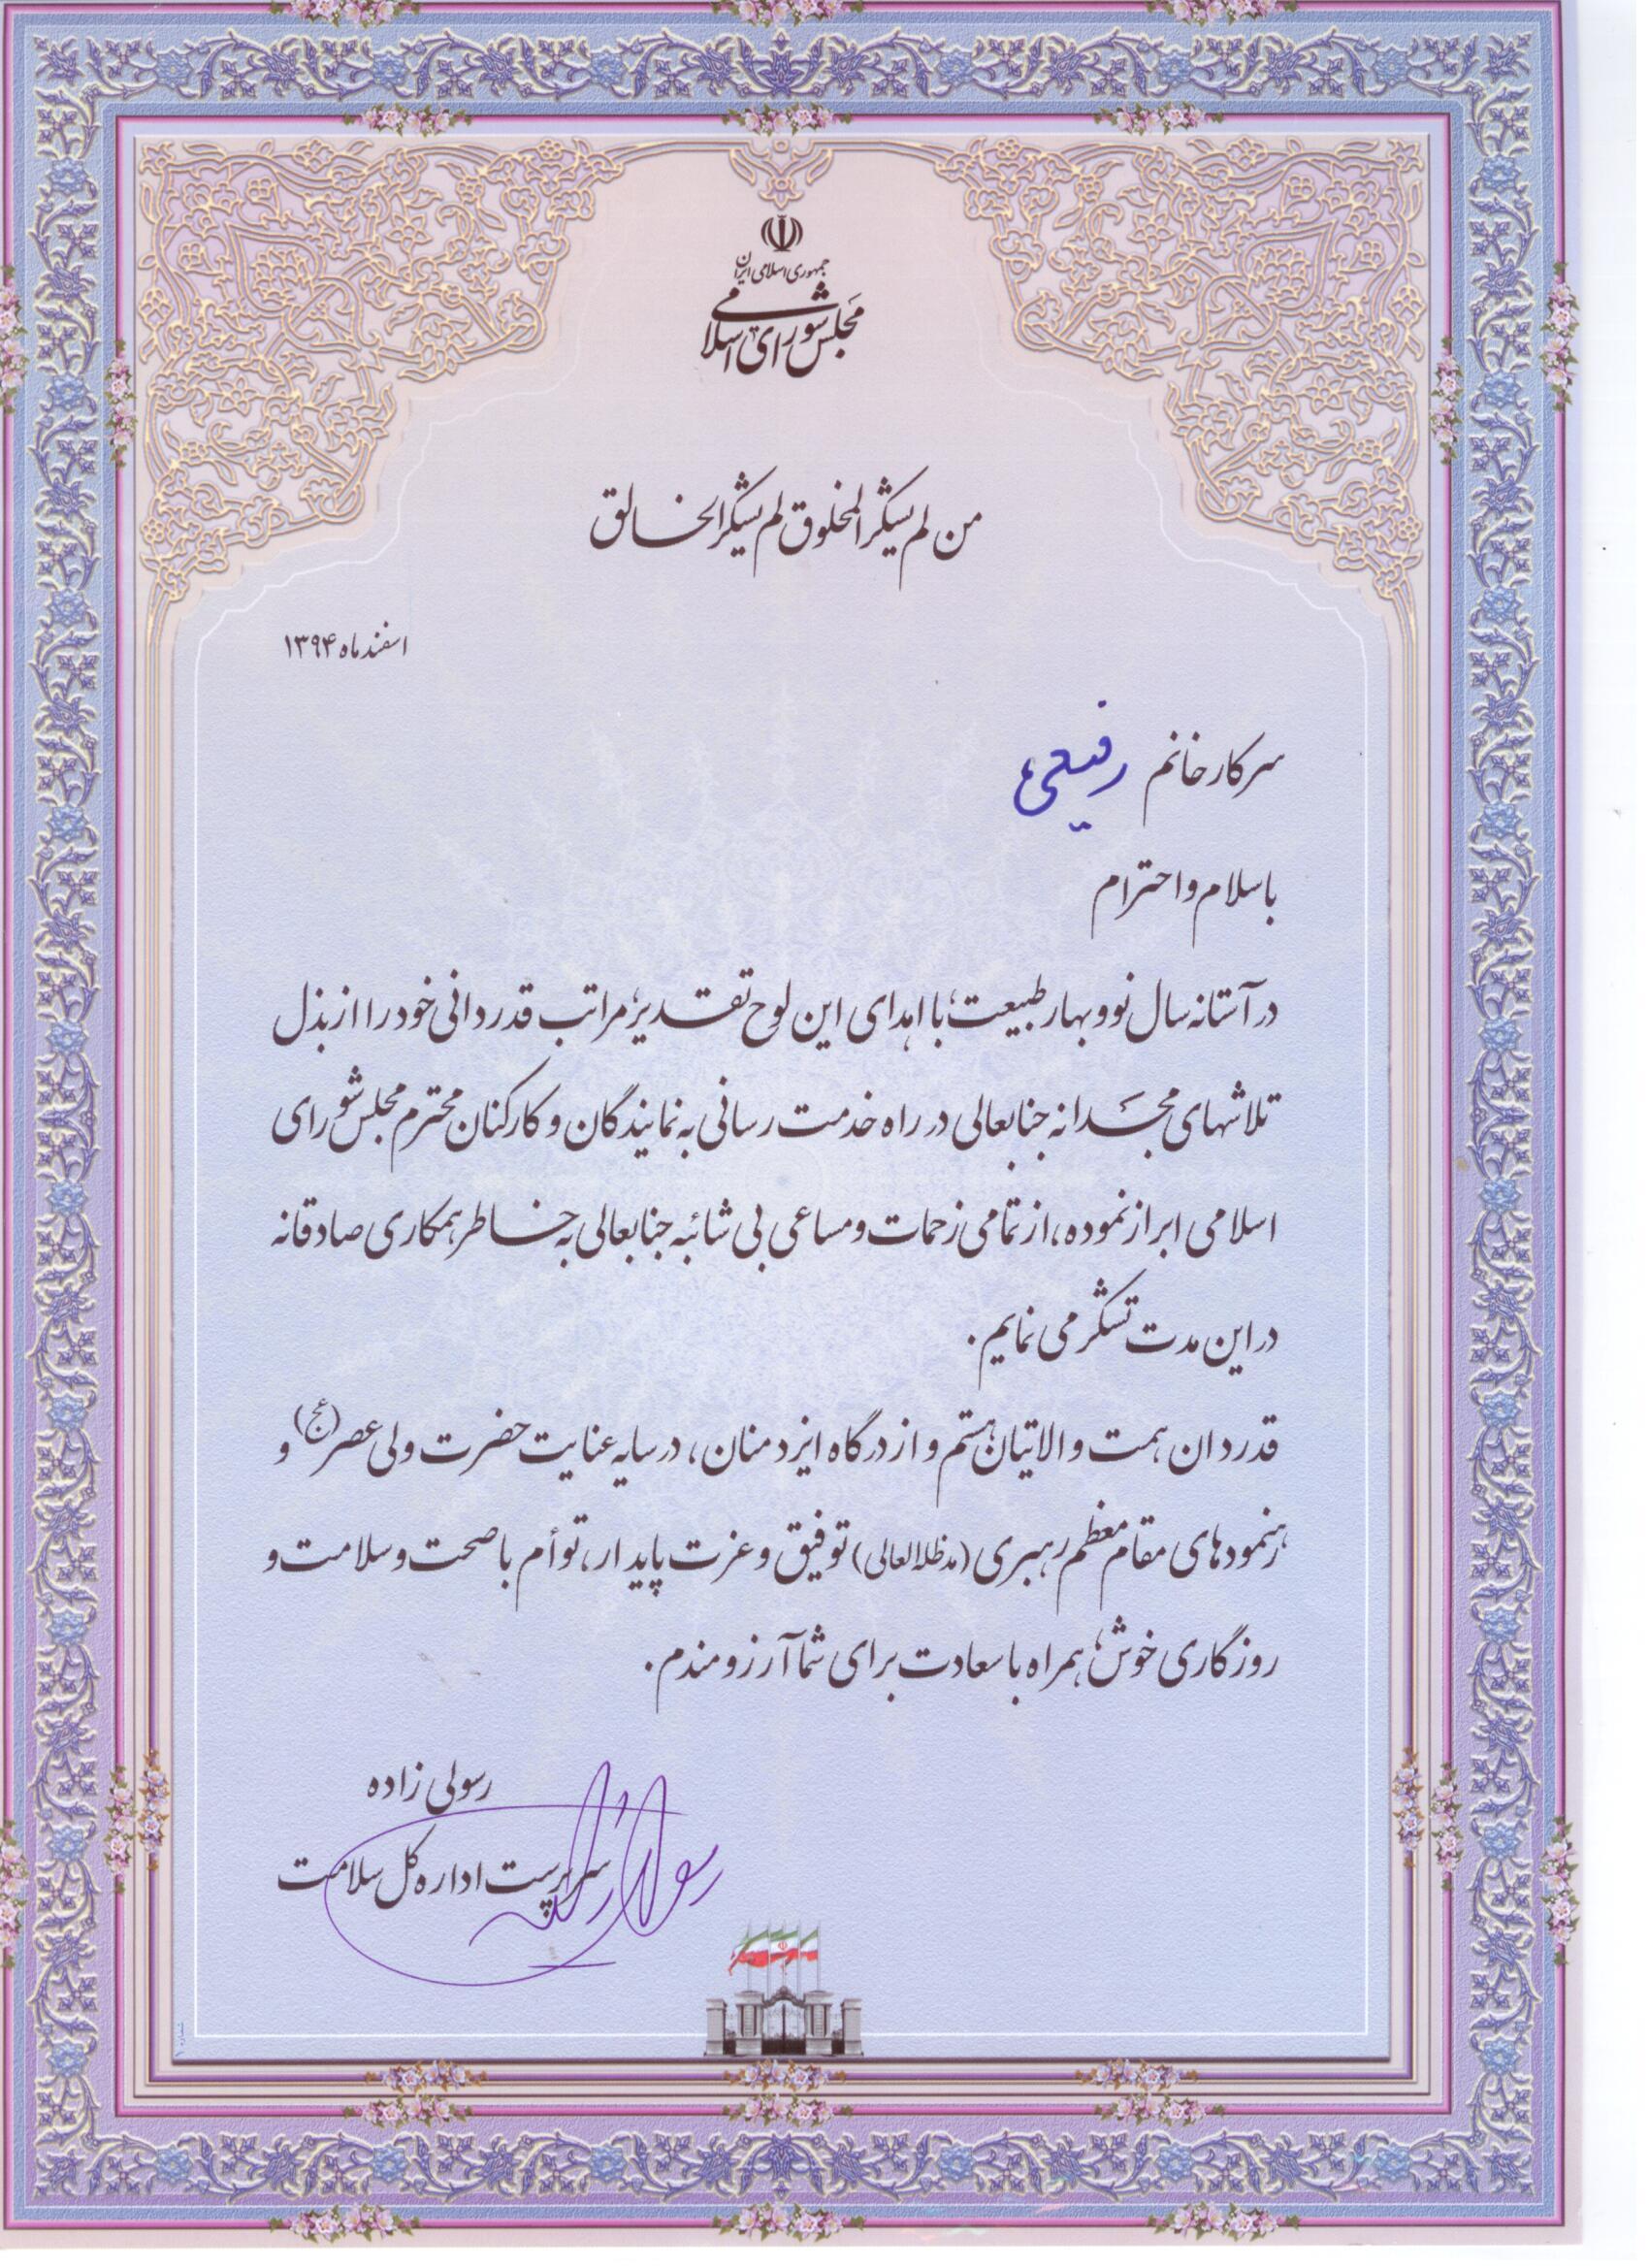 جمهوری اسلامی ایران
مجلس شورای اسلامی
من لم یشکر المخلوق لم یشکر الخالق
اسفند ماه ۱۳۹۴
سرکار خانم رفیعی
با سلام و احترام
در آستانه سال نو و بهار طبیعت؛ با اهدای این لوح تقدیر؛ مراتب قدردانی خود را از بذل
تلاشهای مجدانه جنابعالی در راه خدمت رسانی به نمایندگان و کارکنان محترم مجلس شورای
اسلامی ابراز نموده، از تمامی زحمات و مساعی بی شائبه جنابعالی به خاطر همکاری صادقانه
در این مدت تشکر می نمایم.
قدردان همت والایتان هستم و از درگاه ایزد منان، در سایه عنایت حضرت ولی عصر (عج) و
رهنمودهای مقام معظم رهبری (مدظله العالی) توفیق و عزت پایدار، توأم با صحت و سلامت و
روزگاری خوش؛ همراه با سعادت برای شما آرزومندم.
رسولی زاده
سرپرست اداره کل سلامت